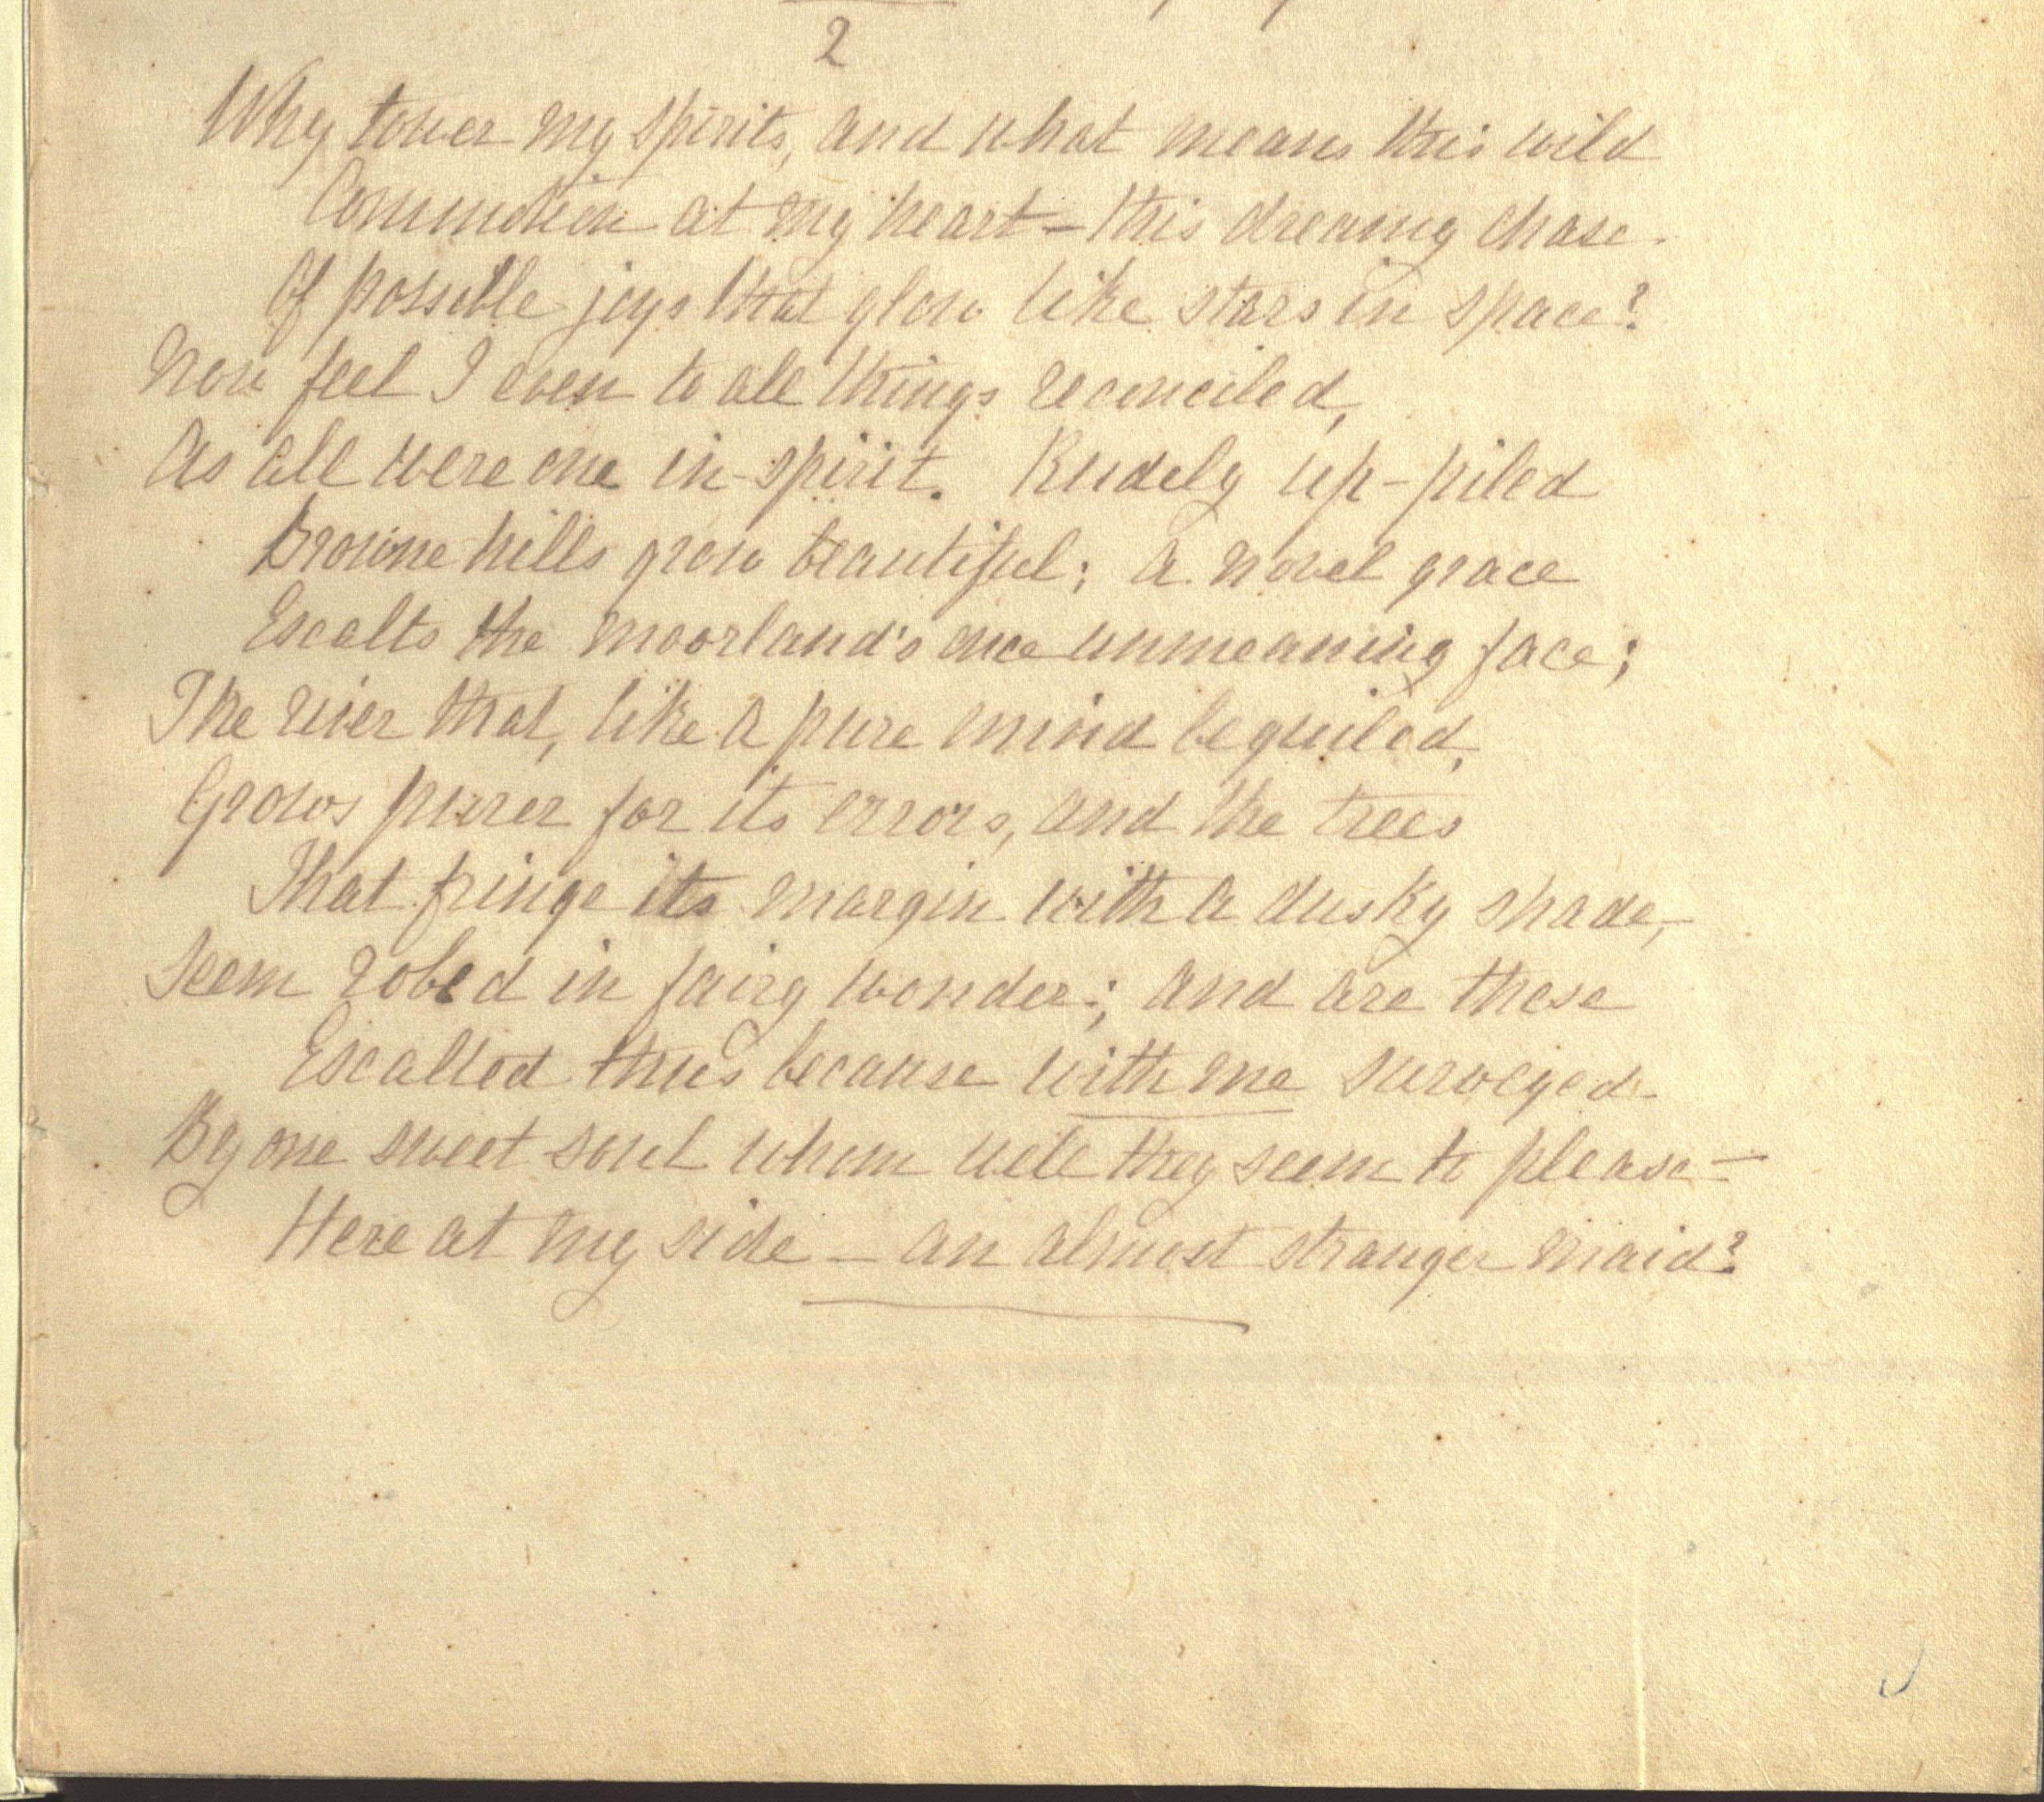 2
Why tower my spirits, and what means this wild
Commotion at my heart – this dreamy chase
Of possible joys that glow like stars in space?
Now feel I even to all things reconciled,
As all were one in spirit. Rudely up-piled
Browne hills grow beautiful; a novel grace
Exalts the moorland's once unmeaning face;
The river that, like a pure mind beguiled,
Grows purer for its errors, and the trees
That fringe its margin with a dusky shade,
Seem robed in fairy wonder; and are these
Exalted thus because with me surveyed
By one sweet soul whom well they seem to please –
Here at my side – an almost stranger maid?